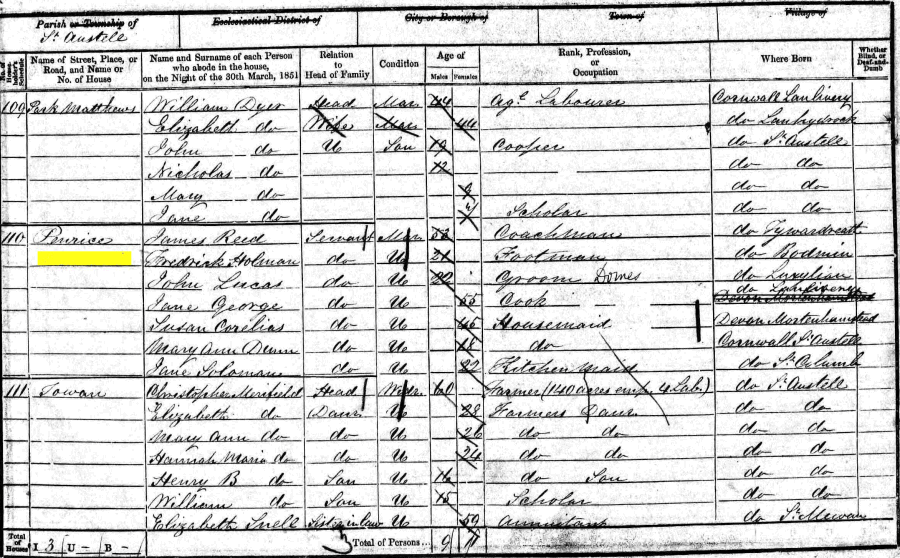 Parish or Township of Ecclesiastical District of City or Borough of Town of Village of
St Austell
No. of Householder's Schedule Name of Street, Place, or Road, and Name or No. of House Name and Surname of each Person who abode in the house, on the Night of the 30th March, 1851 Relation to Head of Family Condition Age of Males Females Rank, Profession, or Occupation Where Born Whether Blind, or Deaf-and-Dumb
109 Park Matthews William Dyer Head Mar 44 Agl Labourer Cornwall Lanlivery
Elizabeth do Wife Mar 44 do Lanhydrock
John do U Son 19 Cooper do St Austell
Nicholas do 12 do do
Mary do do do
Jane do Scholar do do
110 Penrice James Reed Servant Mar Coachman do Tywardreath
Fredrick Holman do U 21 Footman do Bodmin
John Lucas do U 22 Groom Domes do Luxylian
do Lanlivery
Jane George do U 55 Cook Devon Mortenhamstead
Susan Corelias do U 45 Housemaid Devon Mortenhamstead
Mary Ann Dunn do U 18 do Cornwall St Austell
Jane Soloman do U 22 Kitchen Maid do St Columb
111 Towan Christopher Merifield Head Widr 60 Farmer (140 acres emp 4 Labs) do St Austell
Elizabeth do Daur U 28 Farmers Daur do do
Mary Ann do do U 26 do do do do
Hannah Maria do do U 24 do do do do
Henry B do Son U 16 do Son do do
William do Son U 15 Scholar do do
Elizabeth Snell Sister in law U 59 Annuitant do St Mewan
Total of Houses I 3 U - B - Total of Persons 9 11